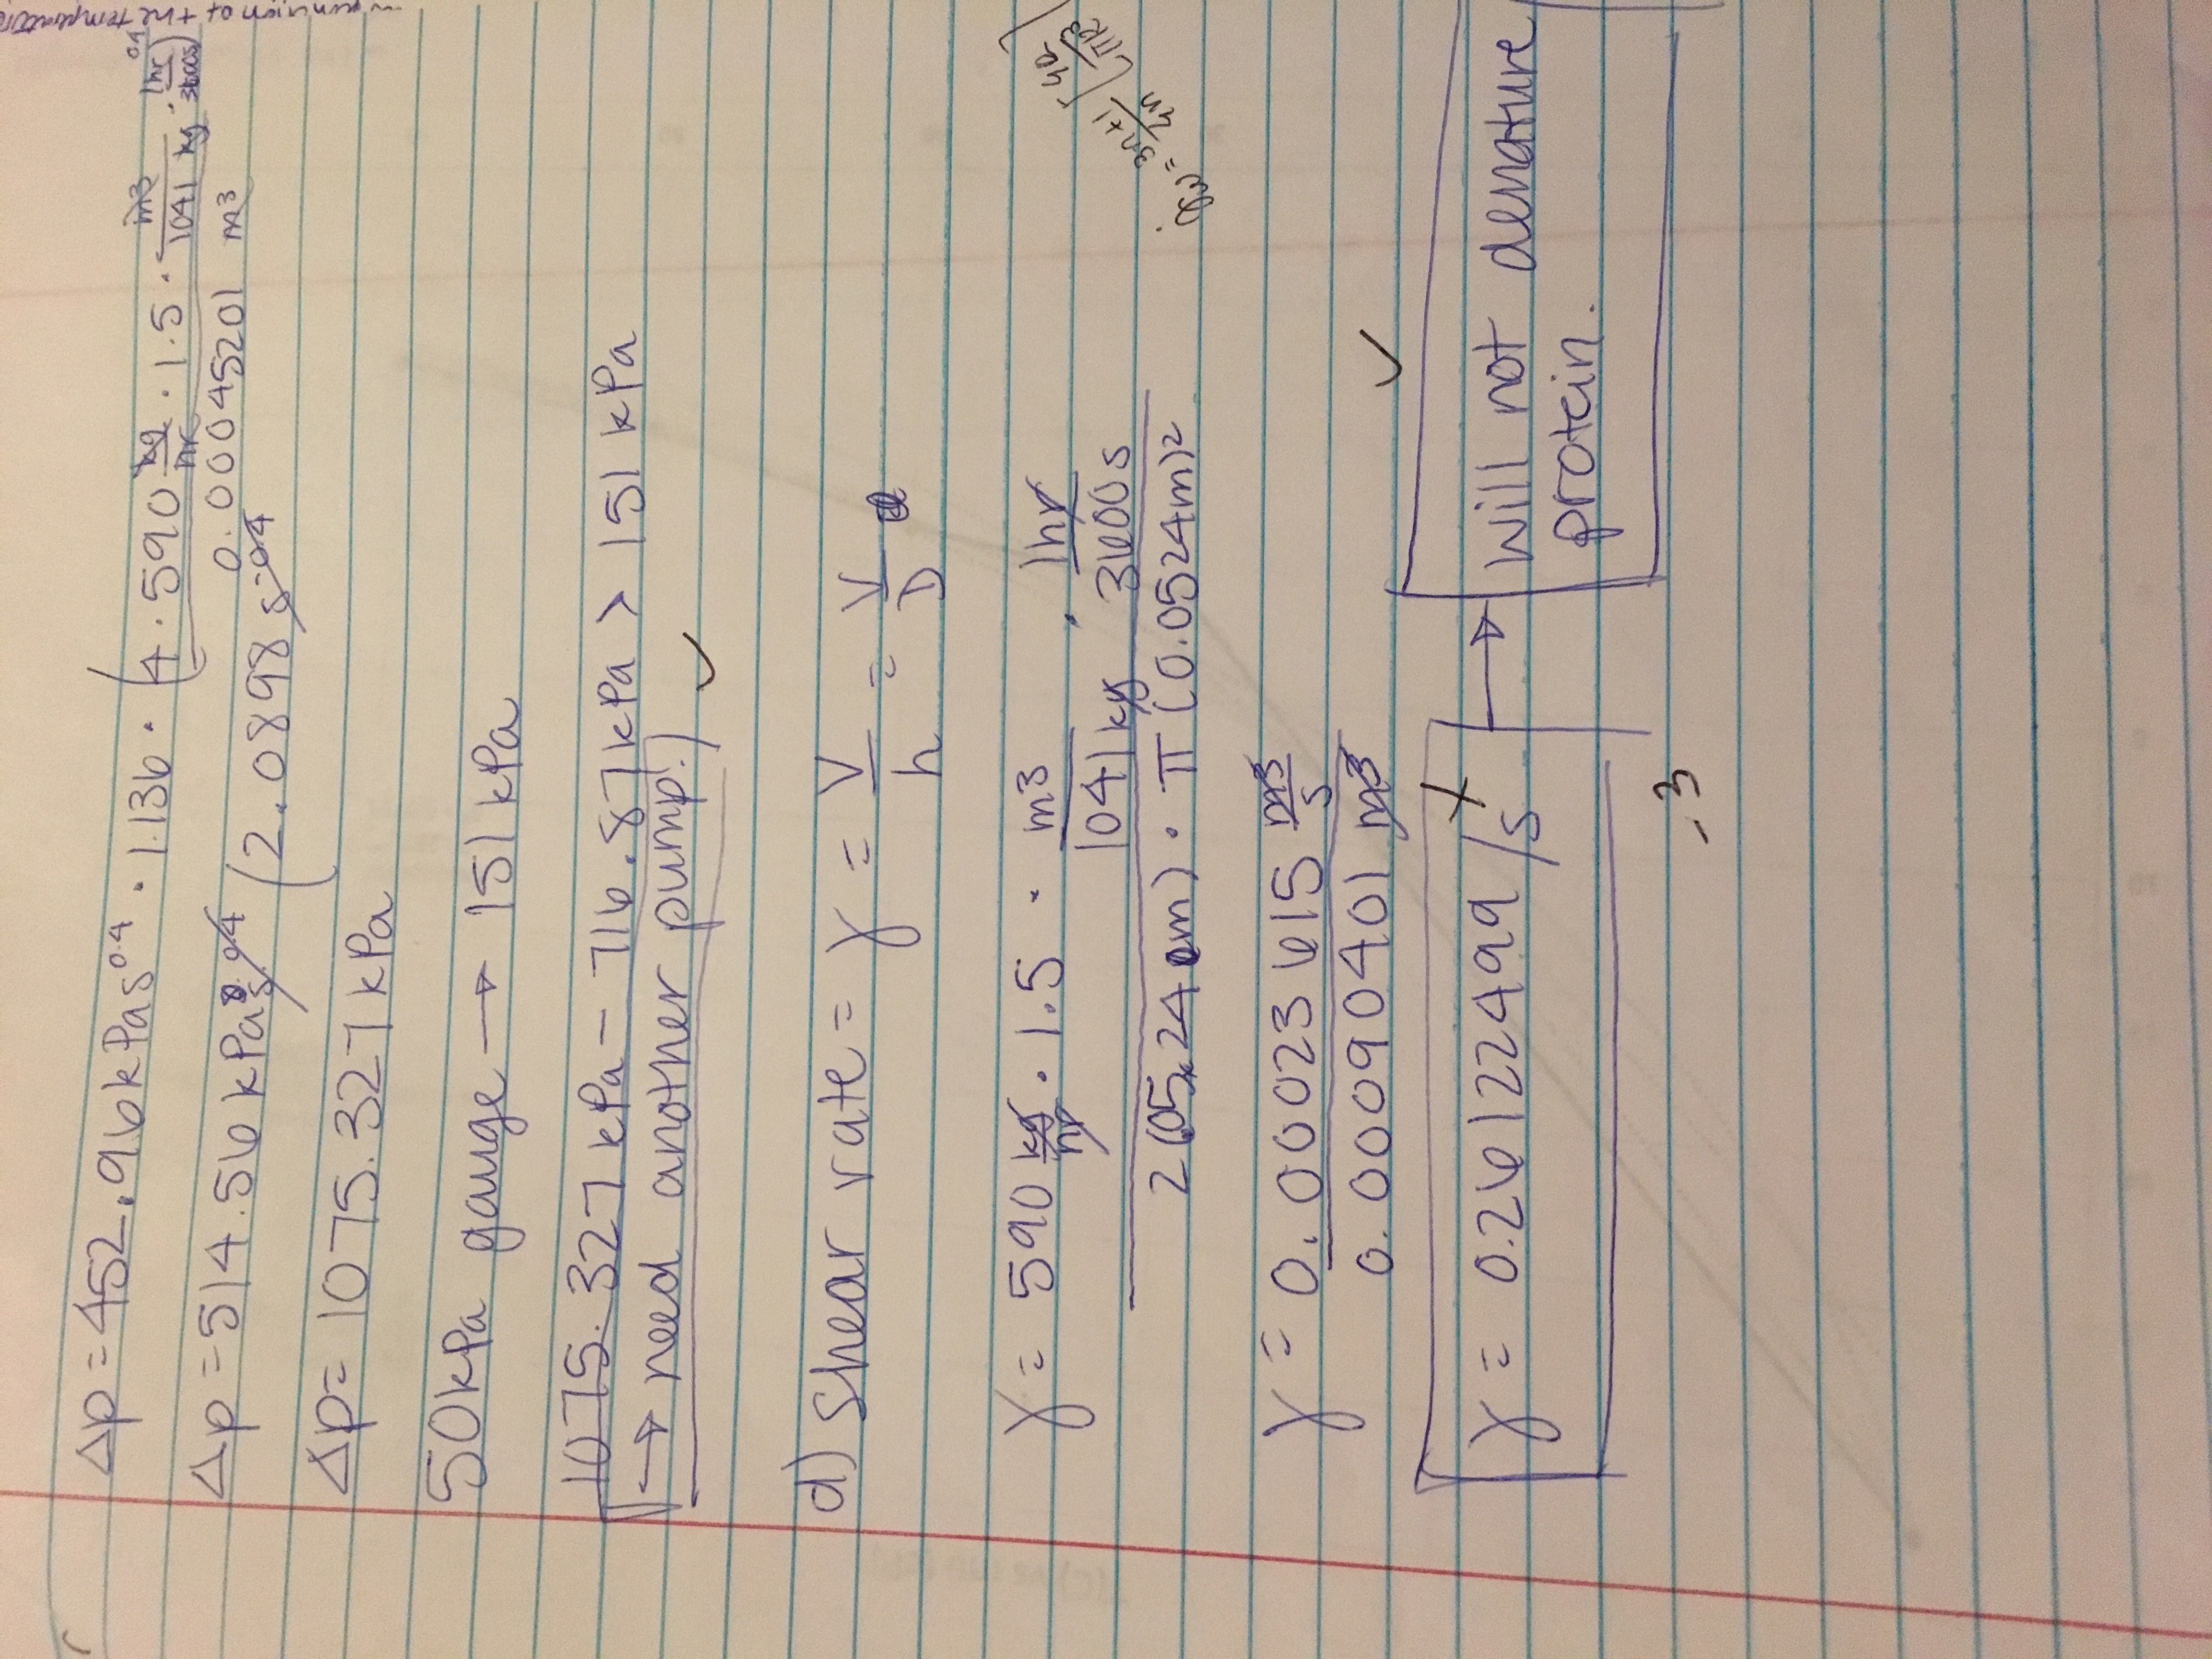 Δp = 452.96 kPa s^0.4 · 1.136 · (4 · 590 kg/hr · 1.5 · m3/1041 kg · 1hr/3600s)^0.4
0.00045201 m3
Δp = 514.56 kPa s^0.4 (2.0898 s^-0.4
Δp = 1075.327 kPa
50kPa gauge → 151 kPa
1075.327 kPa - 716.87 kPa > 151 kPa
→ need another pump! ✓
d) shear rate = γ = V/h = V/D
γ = 590 kg/hr · 1.5 · m3/1041 kg · 1hr/3600s
2(0.0524m) · π (0.0524m)2
γ̇w = 3n+1/4n [4Q/πR3]
γ = 0.00023615 m3/s
0.00090401 m3
✓
γ = 0.26122499 /s X → will not denature
protein.
-3
maintain to the temperature